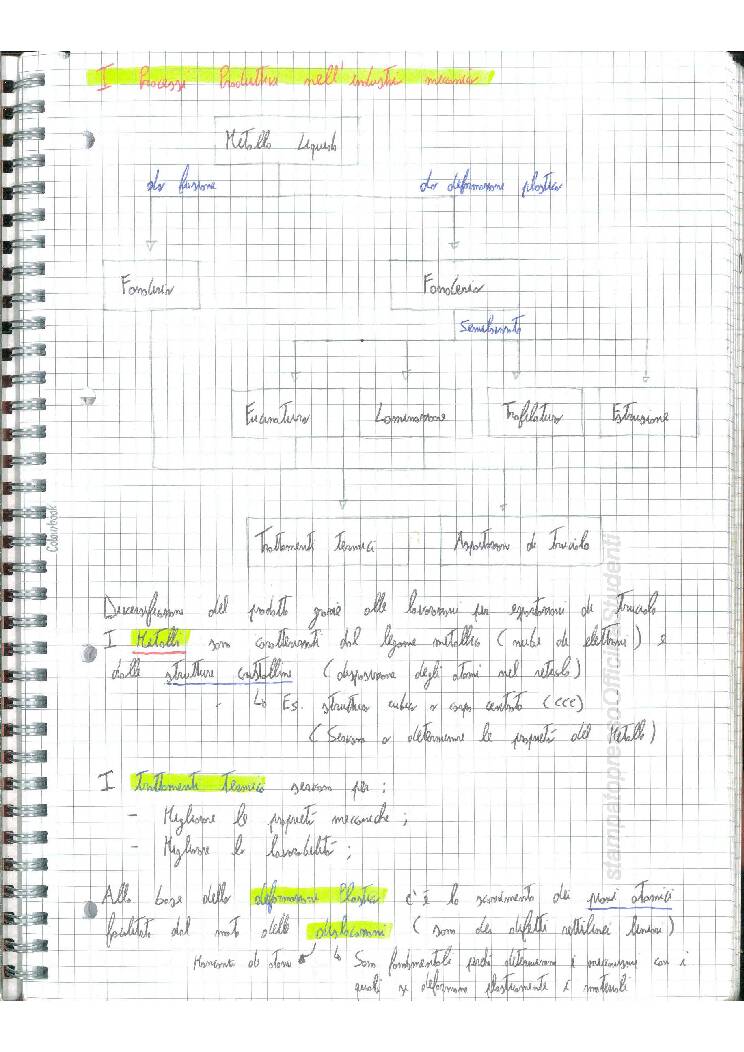 I Processi Produttivi nell'industria meccanica
Metallo Liquido
da fusione
da deformazione plastica
Fonderia
Fonderia
Semilavorato
Fucinatura
Laminazione
Trafilatura
Estrusione
Trattamenti termici
Asportazioni di truciolo
Diversificazione del prodotto grazie alle lavorazioni per asportazioni di Truciolo
I Metalli sono caratterizzati dal legame metallico (nube di elettroni) e
dalle strutture cristalline (disposizione degli atomi nel reticolo)
↳ Es. struttura cubica a corpo centrato (CCC)
(Servono a determinare le proprietà del Metallo)
I Trattamenti Termici servono per:
- Migliorare le proprietà meccaniche;
- Migliorare la lavorabilità;
Alla base delle deformazioni Plastiche c'è lo scorrimento dei piani atomici
facilitati dal moto delle dislocazioni (sono dei difetti rettilinei lineari)
Mancanza di atomi ↳ Sono fondamentali perché determinano i meccanismi con i
quali si deformano plasticamente i materiali
Colourbook
stampatopressoOfficinaStudenti